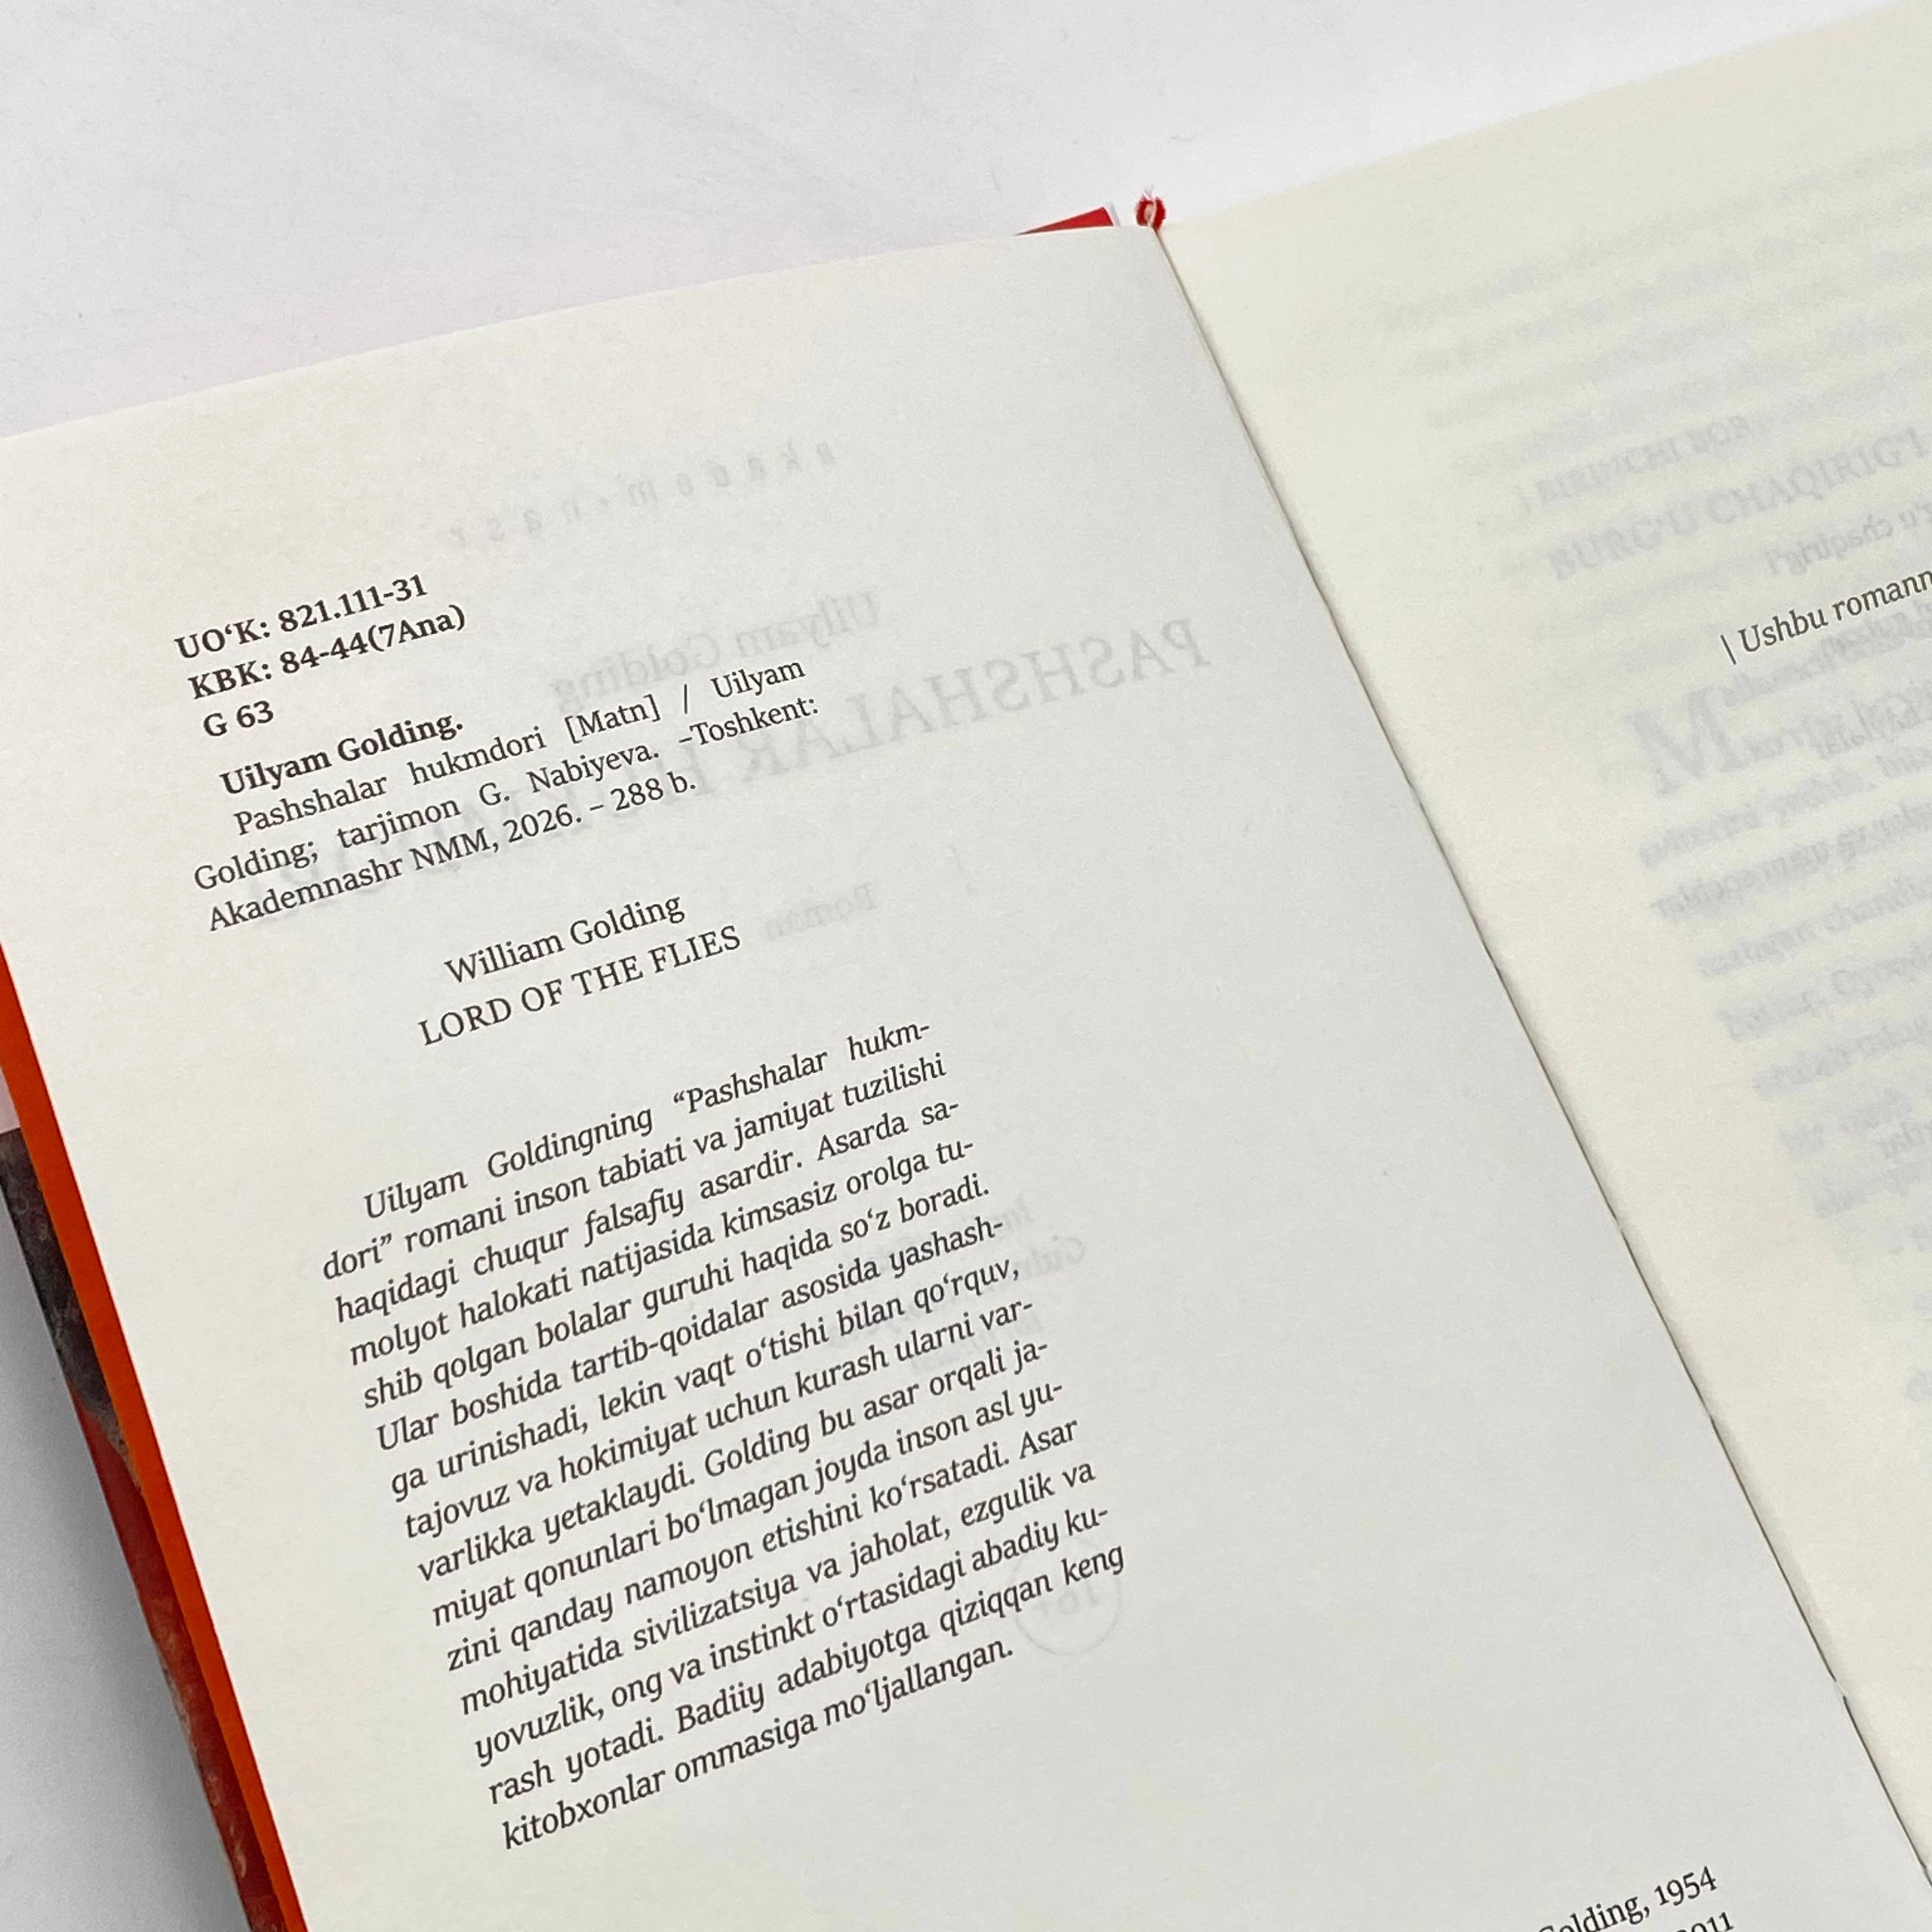 UO‘K: 821.111-31
KBK: 84-44(7Ana)
G 63
Uilyam Golding.
Pashshalar hukmdori [Matn] / Uilyam
Golding; tarjimon G. Nabiyeva. –Toshkent:
Akademnashr NMM, 2026. – 288 b.
William Golding
LORD OF THE FLIES
Uilyam Goldingning “Pashshalar hukm-
dori” romani inson tabiati va jamiyat tuzilishi
haqidagi chuqur falsafiy asardir. Asarda sa-
molyot halokati natijasida kimsasiz orolga tu-
shib qolgan bolalar guruhi haqida so‘z boradi.
Ular boshida tartib-qoidalar asosida yashash-
ga urinishadi, lekin vaqt o‘tishi bilan qo‘rquv,
tajovuz va hokimiyat uchun kurash ularni var-
varlikka yetaklaydi. Golding bu asar orqali ja-
miyat qonunlari bo‘lmagan joyda inson asl yu-
zini qanday namoyon etishini ko‘rsatadi. Asar
mohiyatida sivilizatsiya va jaholat, ezgulik va
yovuzlik, ong va instinkt o‘rtasidagi abadiy ku-
rash yotadi. Badiiy adabiyotga qiziqqan keng
kitobxonlar ommasiga mo‘ljallangan.
Golding, 1954
| Ushbu romann